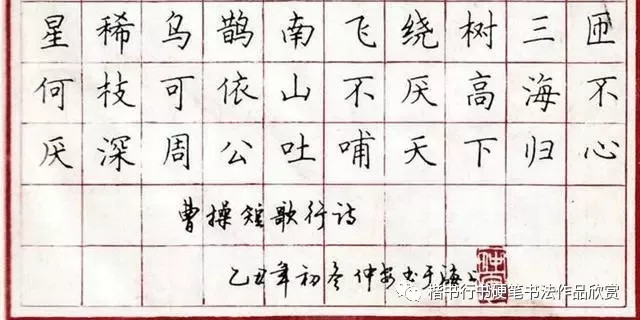 星稀乌鹊南飞绕树三匝
何枝可依山不厌高海不
厌深周公吐哺天下归心
曹操短歌行诗
乙丑年初冬仲安书于海上
楷书行书硬笔书法作品欣赏